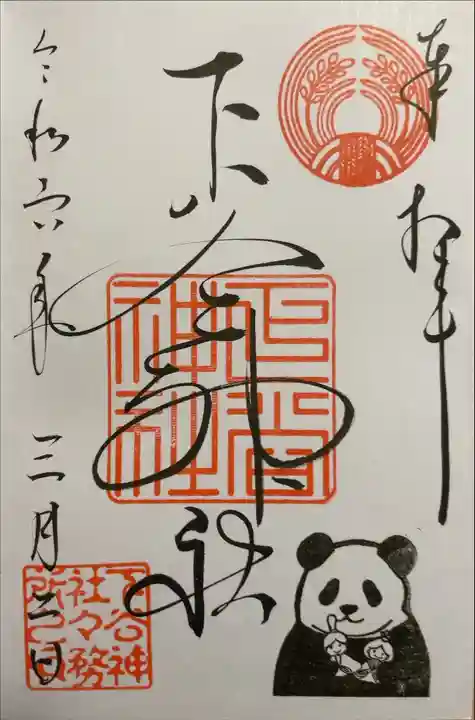 奉拝
下谷神社
令和六年 三月二日
下谷
神社
下谷神
社々務
所之印